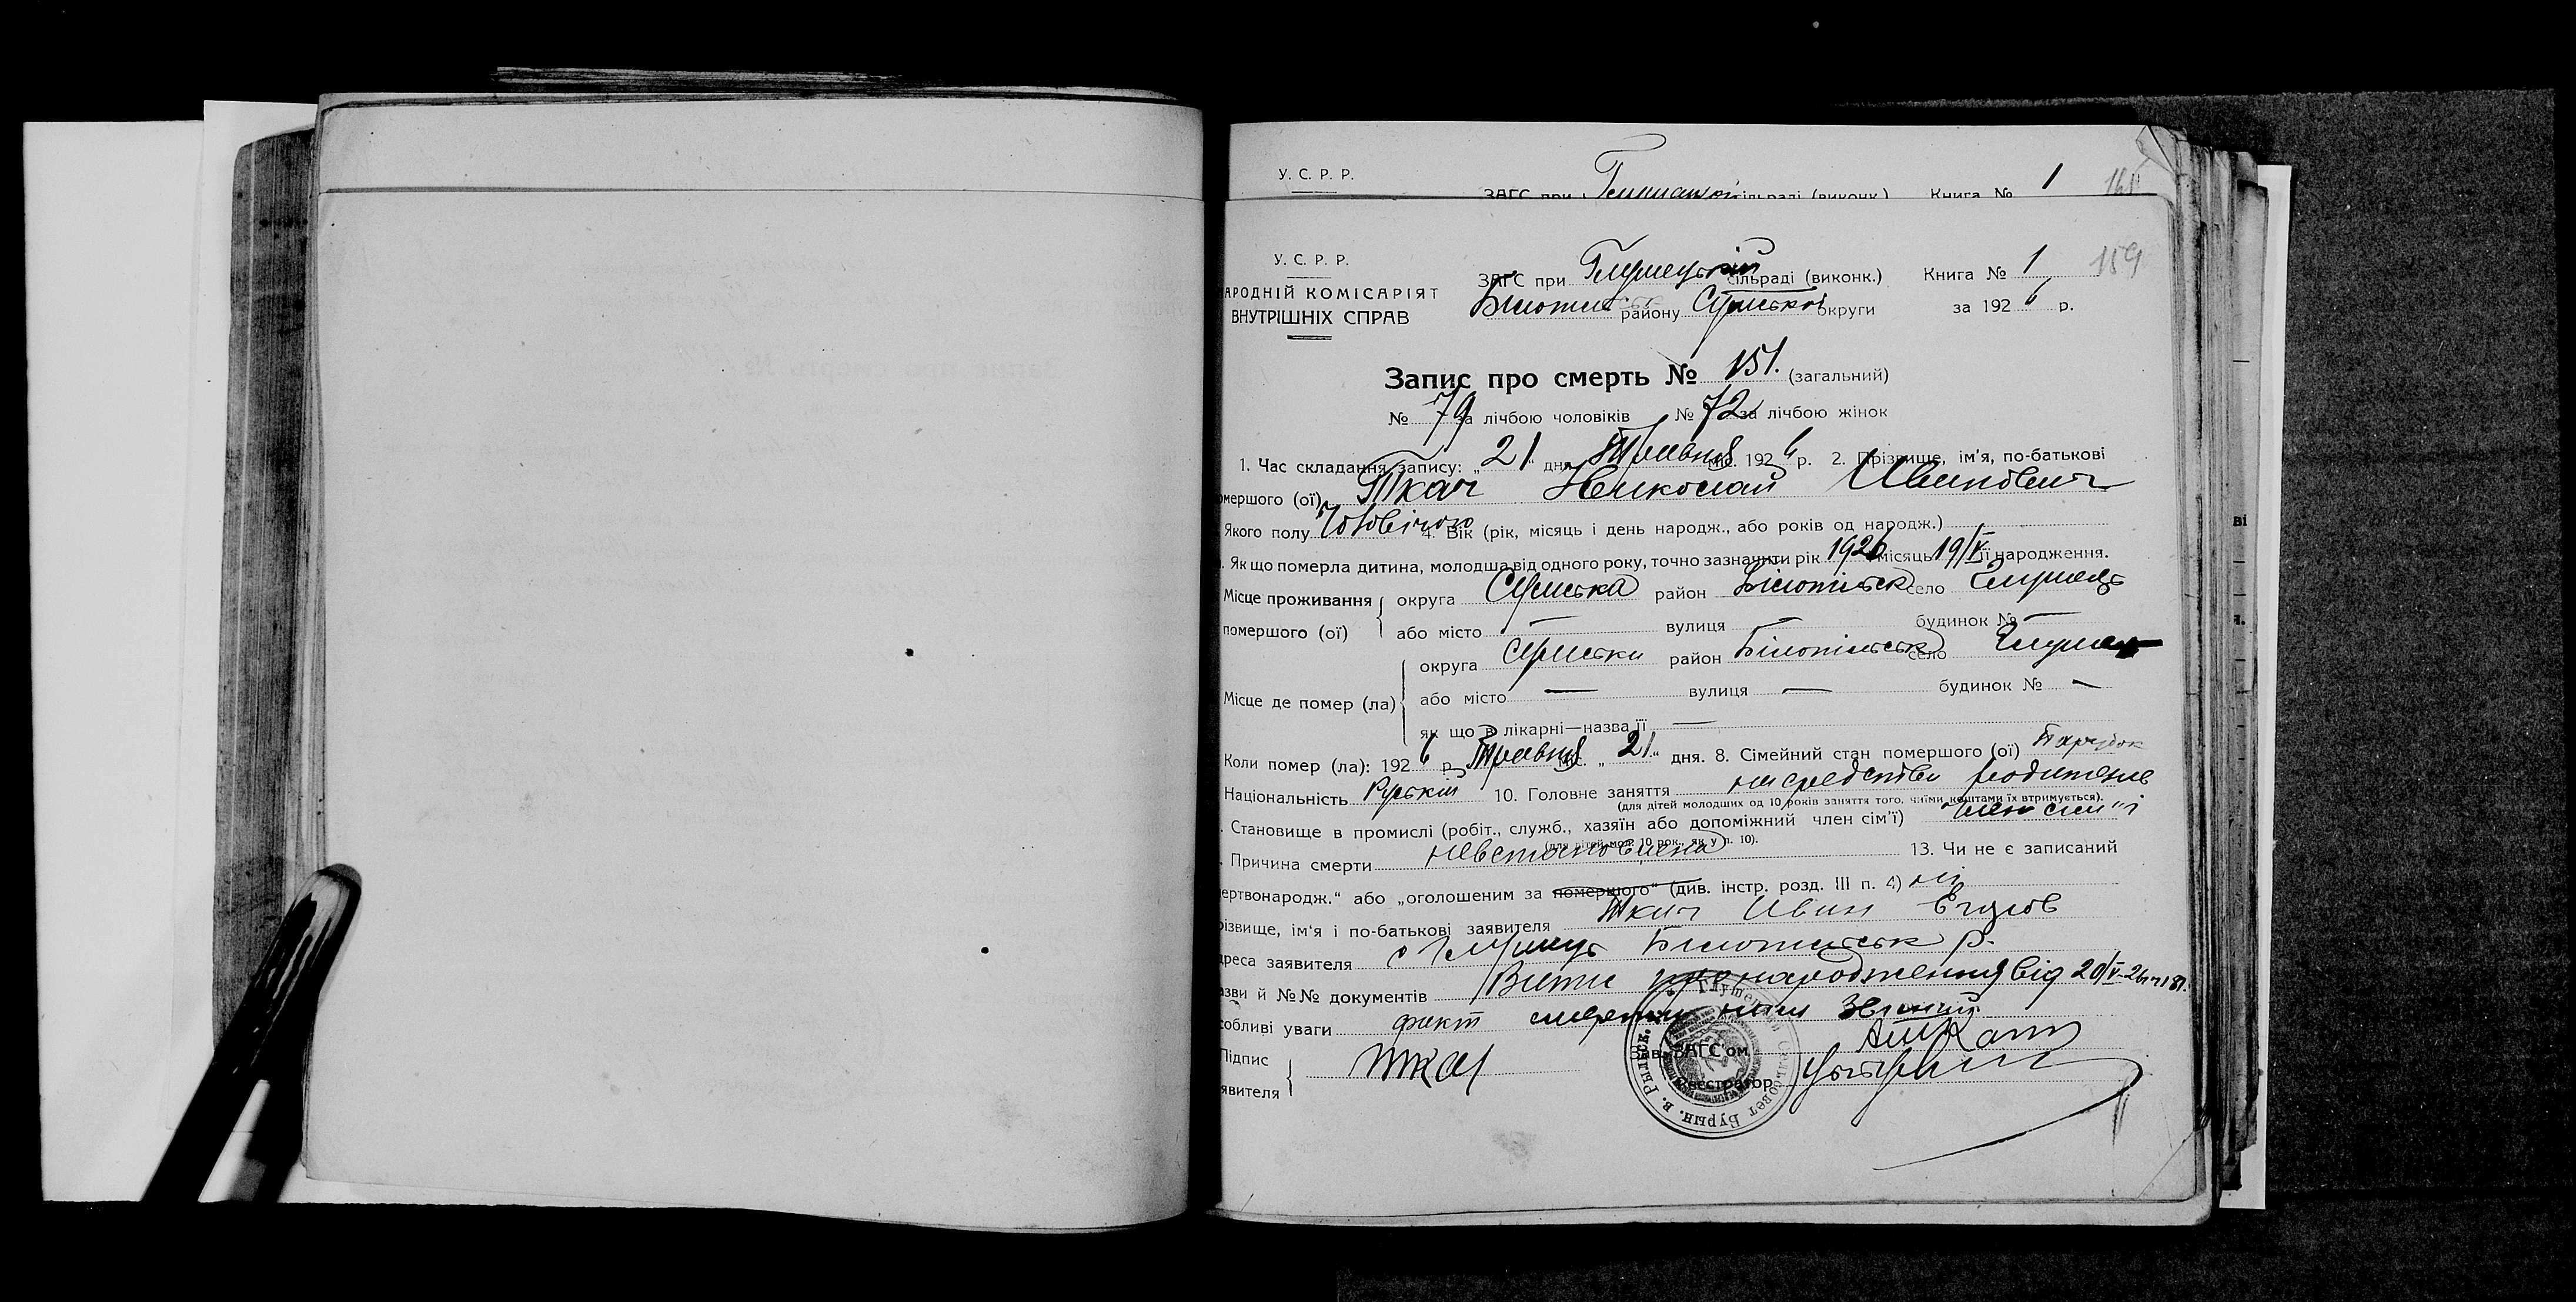 У. С. Р. Р.
ЗАГС при сільраді (виконк.) Книга № 1
У. С. Р. Р.
ЗАГС при Глушецькій сільраді (виконк.) Книга № 1 159
АРОДНІЙ КОМІСАРІЯТ
ВНУТРІШНІХ СПРАВ
району Сумської округи за 1926 р.
Запис про смерть № 151. (загальний)
№ 79 за лічбою чоловіків № 72 за лічбою жінок
1. Час складання запису: „21" дня Травня міс. 1926 р. 2. Прізвище, ім'я, по-батькові
омершого (ої) Ткач Николай Иванович
Якого полу Чоловічого 4. Вік (рік, місяць і день народж., або років од народж.)
. Як що померла дитина, молодша від одного року, точно зазначити рік 1926 місяць 19/V її народження.
Місце проживання округа Сумська район Білопільск село Глушець
помершого (ої) або місто — вулиця — будинок № —
округа Сумська район Білопільськ село Глушець
Місце де помер (ла) або місто — вулиця — будинок № —
як що в лікарні—назва її —
Коли помер (ла): 1926 р. Травня міс. „21" дня. 8. Сімейний стан помершого (ої) Парубок
Національність Руський 10. Головне заняття на средства родителів
(для дітей молодших од 10 років заняття того, чиїми коштами їх втримується).
. Становище в промислі (робіт., служб., хазяїн або допоміжний член сім'ї) член сім'ї
(для дітей мол. 10 рок., як у п. 10).
. Причина смерти невстановлена 13. Чи не є записаний
ертвонародж." або „оголошеним за помершого" (див. інстр. розд. III п. 4) ні
різвище, ім'я і по-батькові заявителя Ткач Иван
дреса заявителя с Глушець Білопільськ р.
азви й №№ документів Витяг про народження від 20/V-26
собливі уваги факт смерти
Підпис
явителя Ткач
Зав. ЗАГС'ом
Реєстратор